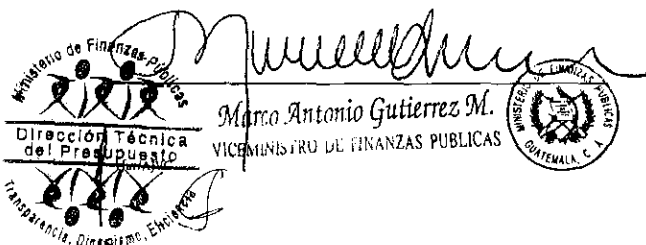 Ministerio de Finanzas Públicas
Dirección Técnica
del Presupuesto
Transparencia, Dinamismo, Eficiencia
Marco Antonio Gutierrez M.
VICEMINISTRO DE FINANZAS PUBLICAS
MINISTERIO DE FINANZAS PUBLICAS
GUATEMALA, C. A.